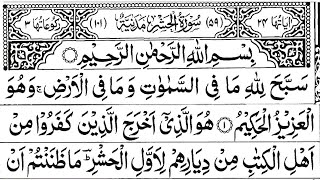 اٰیَاتُهَا ۲۴ (۵۹) سُوْرَةُ الْحَشْرِ مَدَنِيَّةٌ (۱۰۱) رُكُوْعَاتُهَا ۳
بِسْمِ اللّٰهِ الرَّحْمٰنِ الرَّحِيْمِ
سَبَّحَ لِلّٰهِ مَا فِي السَّمٰوٰتِ وَمَا فِي الْاَرْضِ ۚ وَهُوَ
الْعَزِيْزُ الْحَكِيْمُ ۝۱ هُوَ الَّذِيْٓ اَخْرَجَ الَّذِيْنَ كَفَرُوْا مِنْ
اَهْلِ الْكِتٰبِ مِنْ دِيَارِهِمْ لِاَوَّلِ الْحَشْرِ ؔ مَا ظَنَنْتُمْ اَنْ